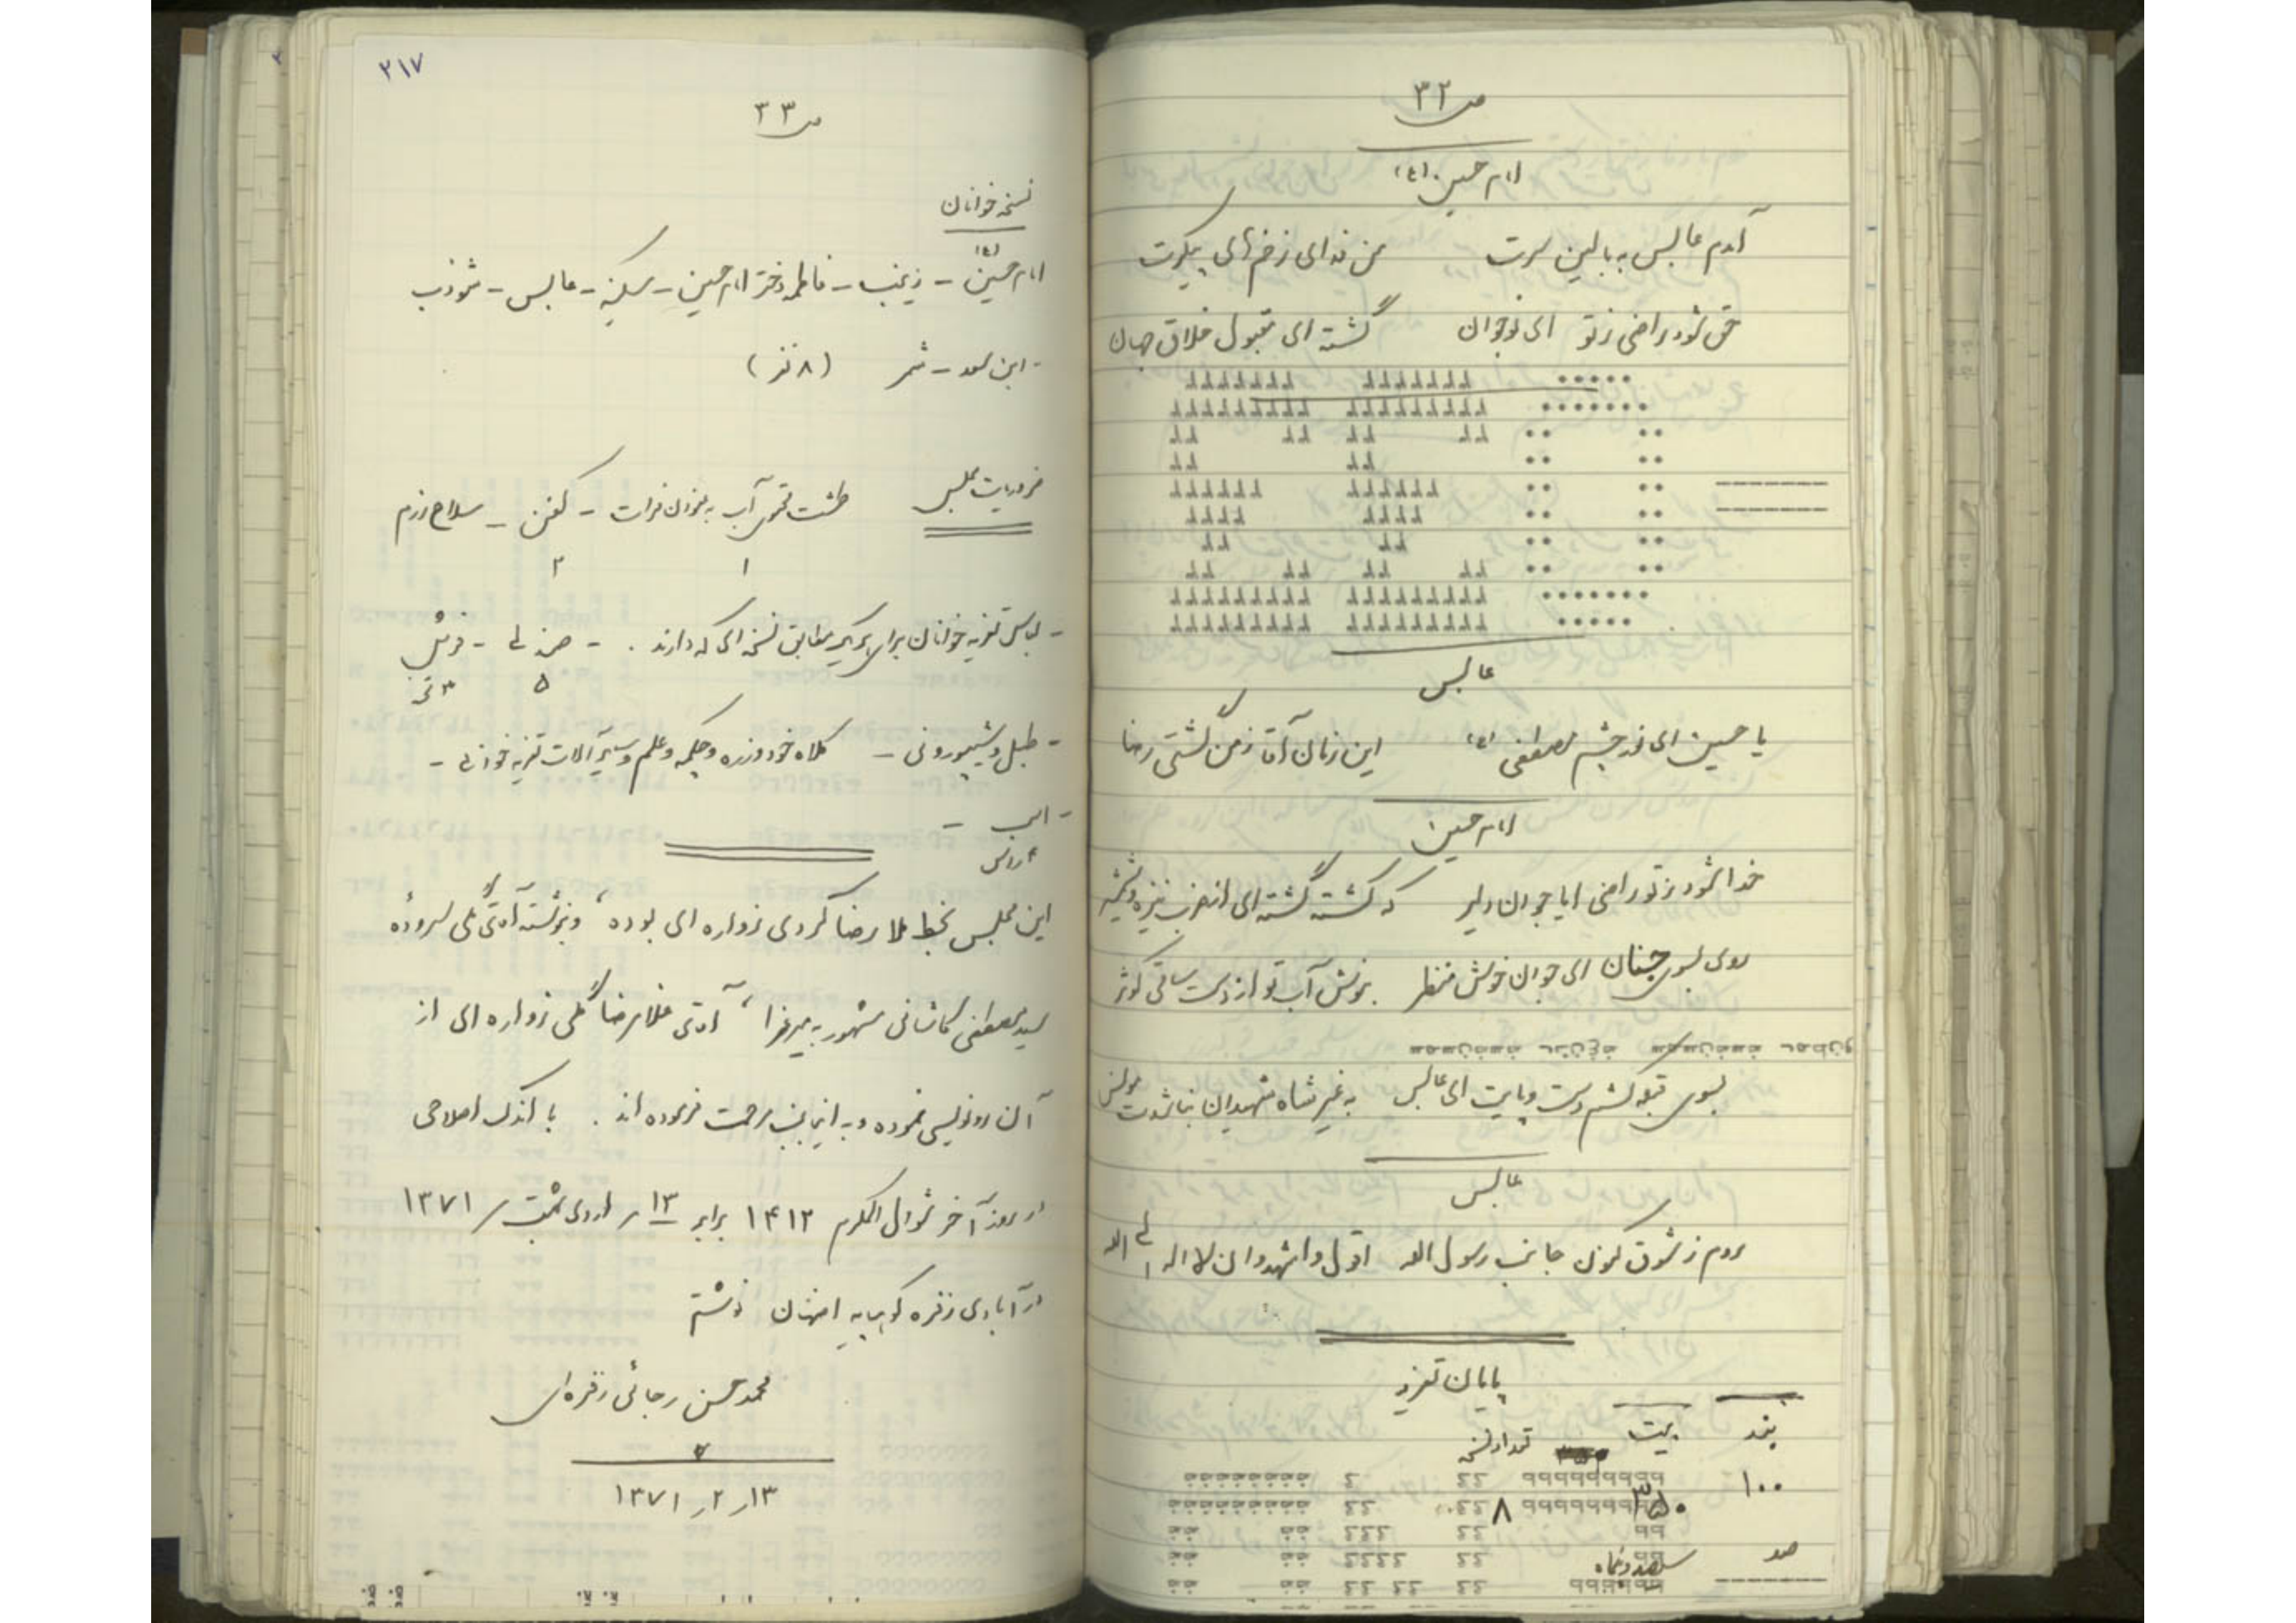 ص ۳۲
امام حسین (ع)
آمدم عابس به بالین سرت من فدای زخمهای پیکرت
حق شود راضی ز تو ای نوجوان گشته ای مقبول خلاق جهان
عابس
یا حسین ای نور چشم مصطفی (ع) این زمان آقا ز من گشتی رضا
امام حسین
خدا شود ز تو راضی ایا جوان دلیر که کشته گشته ای از ضرب نیزه و شمشیر
روی بسوی جنان ای جوان خوش منظر بنوش آب تو از دست ساقی کوثر
بسوی قبله کشم دست و پایت ای عابس به غیر شاه شهیدان نباشدت مونس
عابس
روم ز شوق کنون جانب رسول اله اقول و اشهد و ان لا اله الی اله
پایان تعزیه
بند بیت تعداد نسخ
۱۰۰ ۳۵۰ ۸
صد سیصد و پنجاه
۲۱۷
ص ۳۳
نسخه خوانان
امام حسین (ع) - زینب - فاطمه دختر امام حسین - سکینه - عابس - شوذب
- ابن سعد - شمر (۸ نفر)
ضروریات مجلس طشت آب به عنوان فرات - کفن - سلاح رزم
۱ ۲
- لباس تعزیه خوانان برای هر یک مطابق نسخه ای که دارند . - صندلی - فرش
۵ ۳ تخته
- طبل و شیپور و نی - کلاه خود و زره و چکمه و علم و سایر آلات تعزیه خوانی -
- اسب -
۴ راس
این مجلس بخط ملا رضا کردی زواره ای بوده، و بنوشته آقای گلی سروده
سید مصطفی کاشانی مشهور به میرعزا، آقای غلامرضا گلی زواره ای از
آن رونویسی نموده و به اینجانب مرحمت فرموده اند . با اندک اصلاحی
در روز آخر شوال المکرم ۱۴۱۲ برابر ۱۳ / اردی بهشت / ۱۳۷۱
در آبادی زفره کوهپایه اصفهان نوشتم
محمد حسن رجائی زفره ای
۱۳ / ۲ / ۱۳۷۱